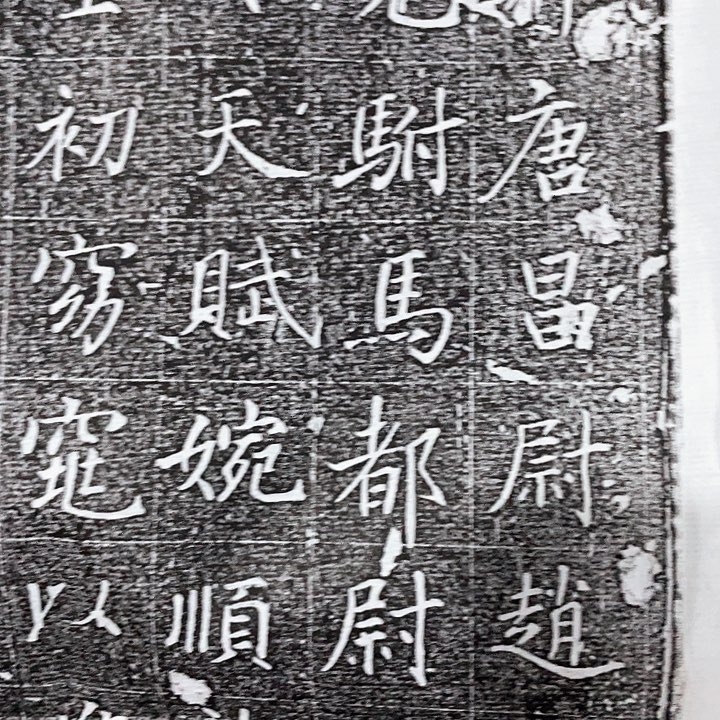 唐昌尉趙
駙馬都尉
天賦婉順
初窈窕以